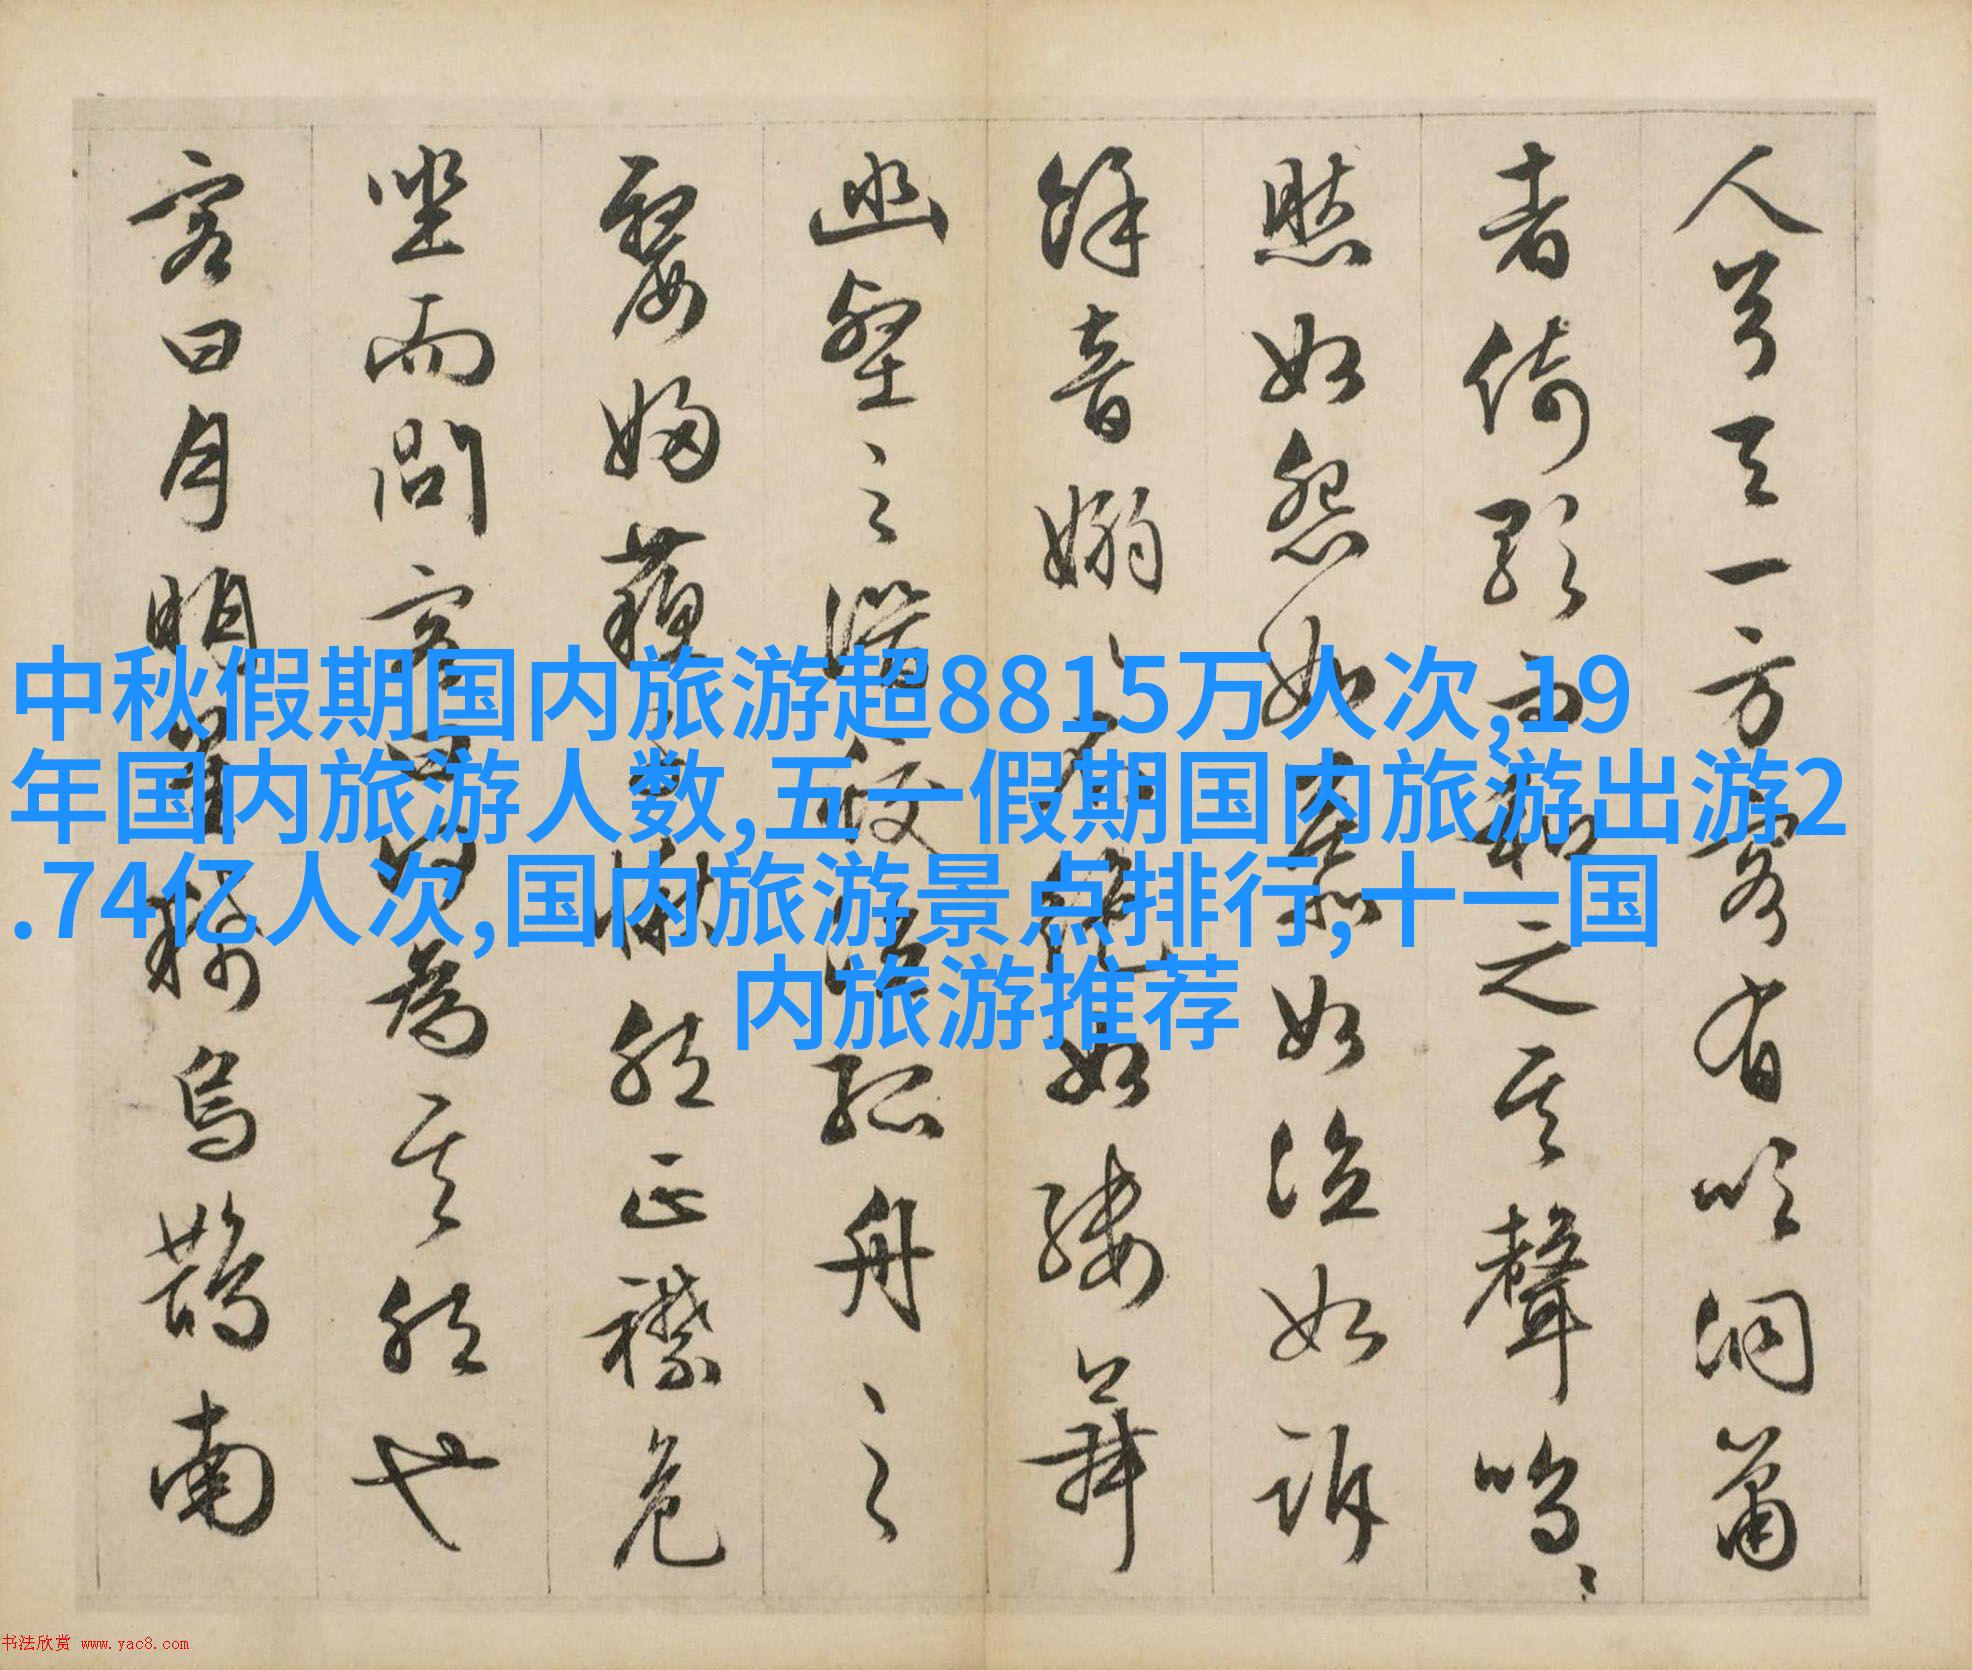 人兮天一方客有吹洞蕭
者倚歌而和之其聲嗚〻
然如怨如慕如泣如訴
餘音嫋〻不絕如縷舞
幽壑之潛蛟泣孤舟之
嫠婦蘇子愀然正襟危
坐而問客曰何為其然也
客曰月明星稀烏鵲南
中秋假期国内旅游超8815万人次,19
年国内旅游人数,五一假期国内旅游出游2
.74亿人次,国内旅游景点排行,十一国
内旅游推荐
书法欣赏 www.yac8.com